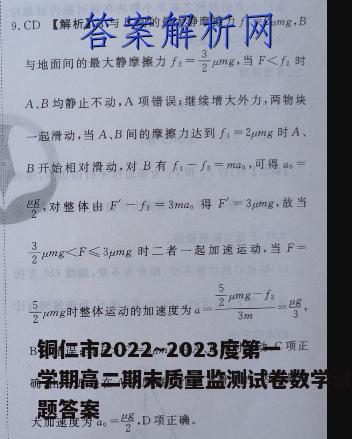 答案解析网
9.CD 【解析】与 的最 静摩擦力 f μmg,B
与地面间的最大静摩擦力 f₂=3/2 μmg,当 F<f₂ 时
A、B 均静止不动,A 项错误;继续增大外力,两物块
一起滑动,当 A、B 间的摩擦力达到 f₁=2μmg 时 A、
B 开始相对滑动,对 B 有 f₁-f₂=ma₀,可得 a₀=
μg/2,对整体由 F′-f₂=3ma₀ 得 F′=3μmg,故当
3/2 μmg<F≤3μmg 时二者一起加速运动,当 F=
5/2 μmg时整体运动的加速度为 a=(5/2 μmg-f₂)/3m=μg/3,
铜仁市2022~2023度第一
B C 项正
学期高二期末质量监测试卷数学试
确
题答案
大加速度为 a₀=μg/2,D 项正确。